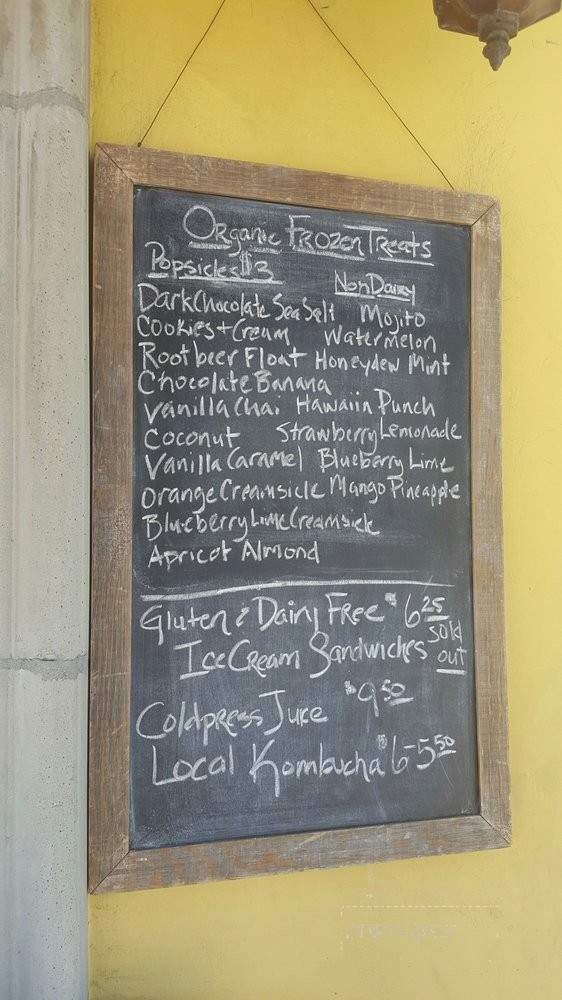 Organic Frozen Treats
Popsicles $3
Non Dairy
Dark Chocolate Sea Salt Mojito
Cookies + Cream Watermelon
Rootbeer Float Honeydew Mint
Chocolate Banana
Vanilla Chai Hawaiin Punch
Coconut Strawberry Lemonade
Vanilla Caramel Blueberry Lime
Orange Creamsicle Mango Pineapple
Blueberry Lime Creamsicle
Apricot Almond
Gluten & Dairy Free $6 25
Ice Cream Sandwiches sold out
Coldpress Juice $9 50
Local Kombucha $6-5 50